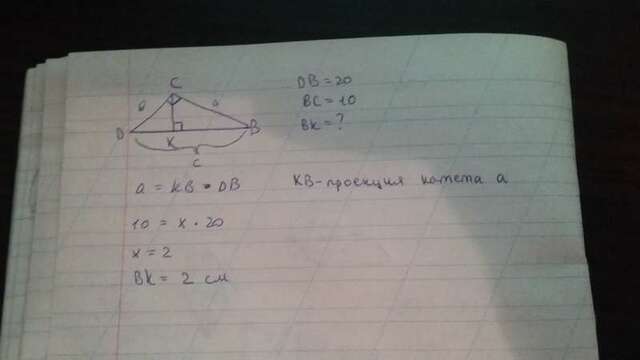 C
DB = 20
BC = 10
BK = ?
в a
D K B
c
a = KB • DB
KB-проекция катета a
10 = x · 20
x = 2
BK = 2 см